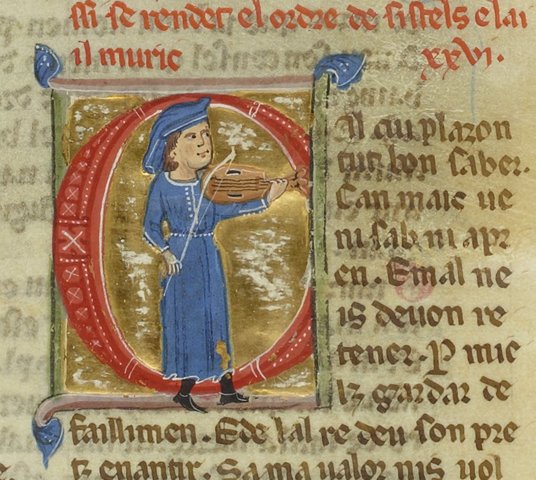 ssi se rendet el ordre de sistels e lai
il muric xxvi.
Al cui plazon
tut bon saber.
Can maic ue
ni sab ni apr
en. E mal ne
is deuon re
tener. P mic
lz gardar de
faillimen. E de lal re deu son pre
tz enantir. Sa ma ualor nis uol